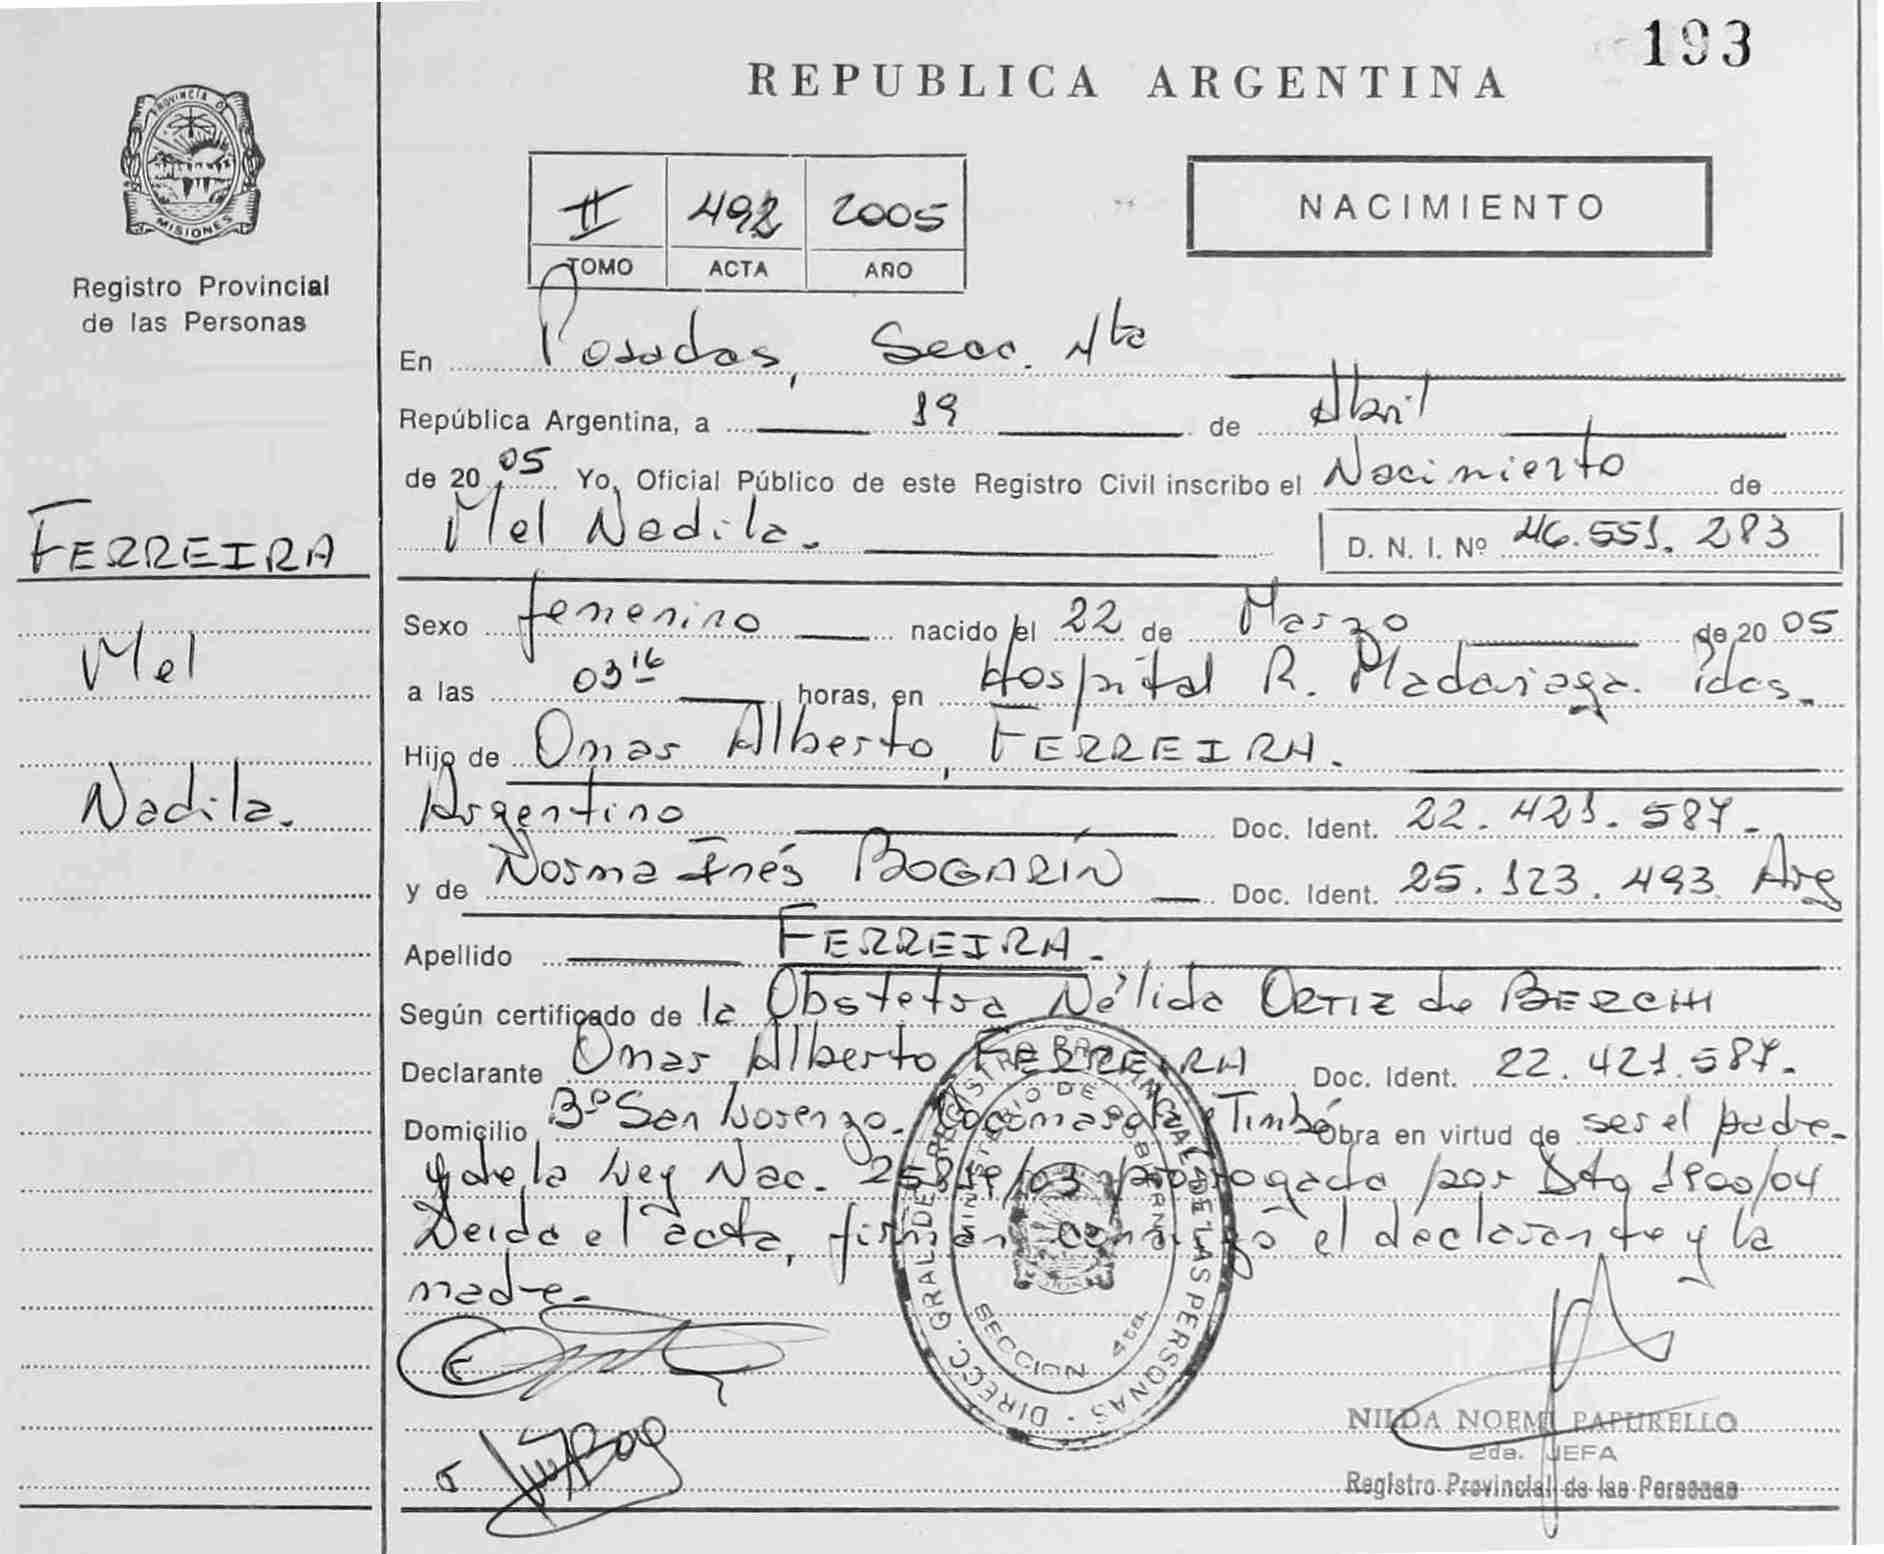 193
REPUBLICA ARGENTINA
PROVINCIA D
MISIONES
Registro Provincial
de las Personas
II 492 2005
TOMO ACTA AÑO
NACIMIENTO
En Posadas, Secc. 4ta
República Argentina, a 19 de Abril
de 2005 Yo, Oficial Público de este Registro Civil inscribo el Nacimiento de
Mel Nadila.
D. N. I. Nº 46.551.283
FERREIRA
Mel
Nadila.
Sexo femenino nacido el 22 de Marzo de 2005
a las 03 16 horas, en Hospital R. Madariaga. Pdas.
Hijo de Omar Alberto, FERREIRA.
Argentino Doc. Ident. 22.421.587.
y de Norma Inés BOGARÍN Doc. Ident. 25.123.493 Arg
Apellido FERREIRA.
Según certificado de la Obstetra Nélida ORTIZ de BERCHI
Declarante Omar Alberto FERREIRA Doc. Ident. 22.421.587.
Domicilio Bº San Lorenzo. Timbó Obra en virtud de ser el padre.
y de la Ley Nac. 25819/03 prorrogada por Dto 1900/04
Leida el acta, firman conmigo el declarante y la
madre.
DIRECC. GRAL. DE REGISTRO PROVINCIAL DE LAS PERSONAS
MINISTERIO DE GOBIERNO
SECCION 4ta.
NILDA NOEMI PAPURELLO
2da. JEFA
Registro Provincial de las Personas